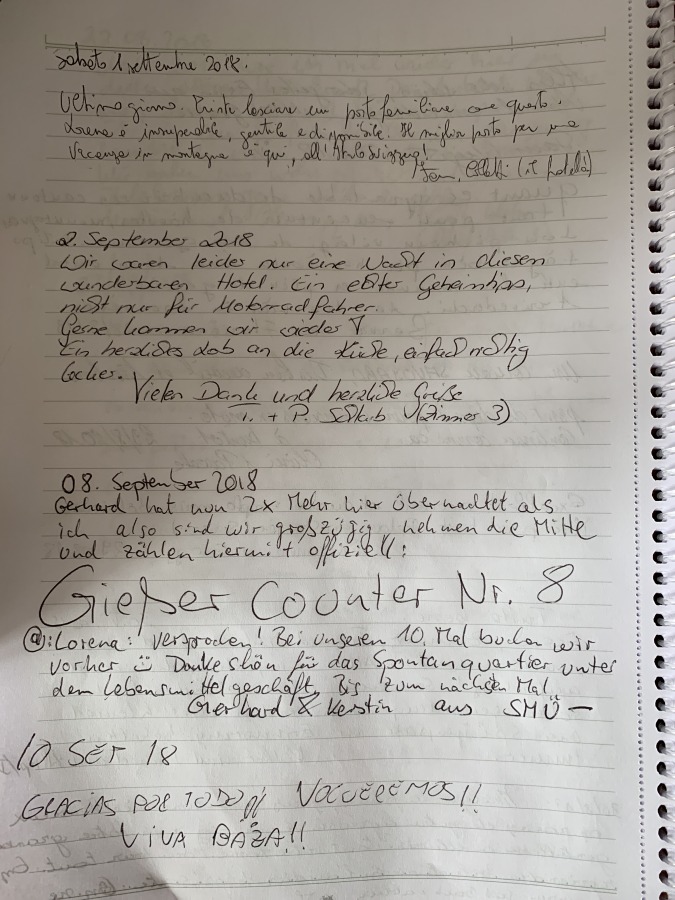 sabato 1 settembre 2018.
Ultimo giorno. Triste lasciare un posto familiare come questo.
Lorena è insuperabile, gentile e disponibile. Il miglior posto per una
vacanza in montagna è qui, all'
2. September 2018
Wir waren leider nur eine Nacht in diesen
wunderbaren Hotel. Ein echter Geheimtipp,
nicht nur für Motorradfahrer.
Gerne kommen wir wieder !
Ein herzliches Lob an die Küche, einfach richtig
lecker.
Vielen Dank und herzliche Grüße
+ P. (Zimmer 3)
08. September 2018
Gerhard hat nun 2x Mehr hier übernachtet als
ich also sind wir großzügig, nehmen die Mitte
und zählen hiermit offiziell:
Gießer Counter Nr. 8
@:Lorena: Versprochen! Bei unseren 10. Mal buchen wir
vorher Ü Danke schön für das Spontanquartier unter
dem Lebensmittelgeschäft. Bis zum nächsten Mal.
Gerhard & Kerstin aus SMÜ –
10 SET 18
GRACIAS POR TODO VOLVEREMOS!!
VIVA BAZA!!